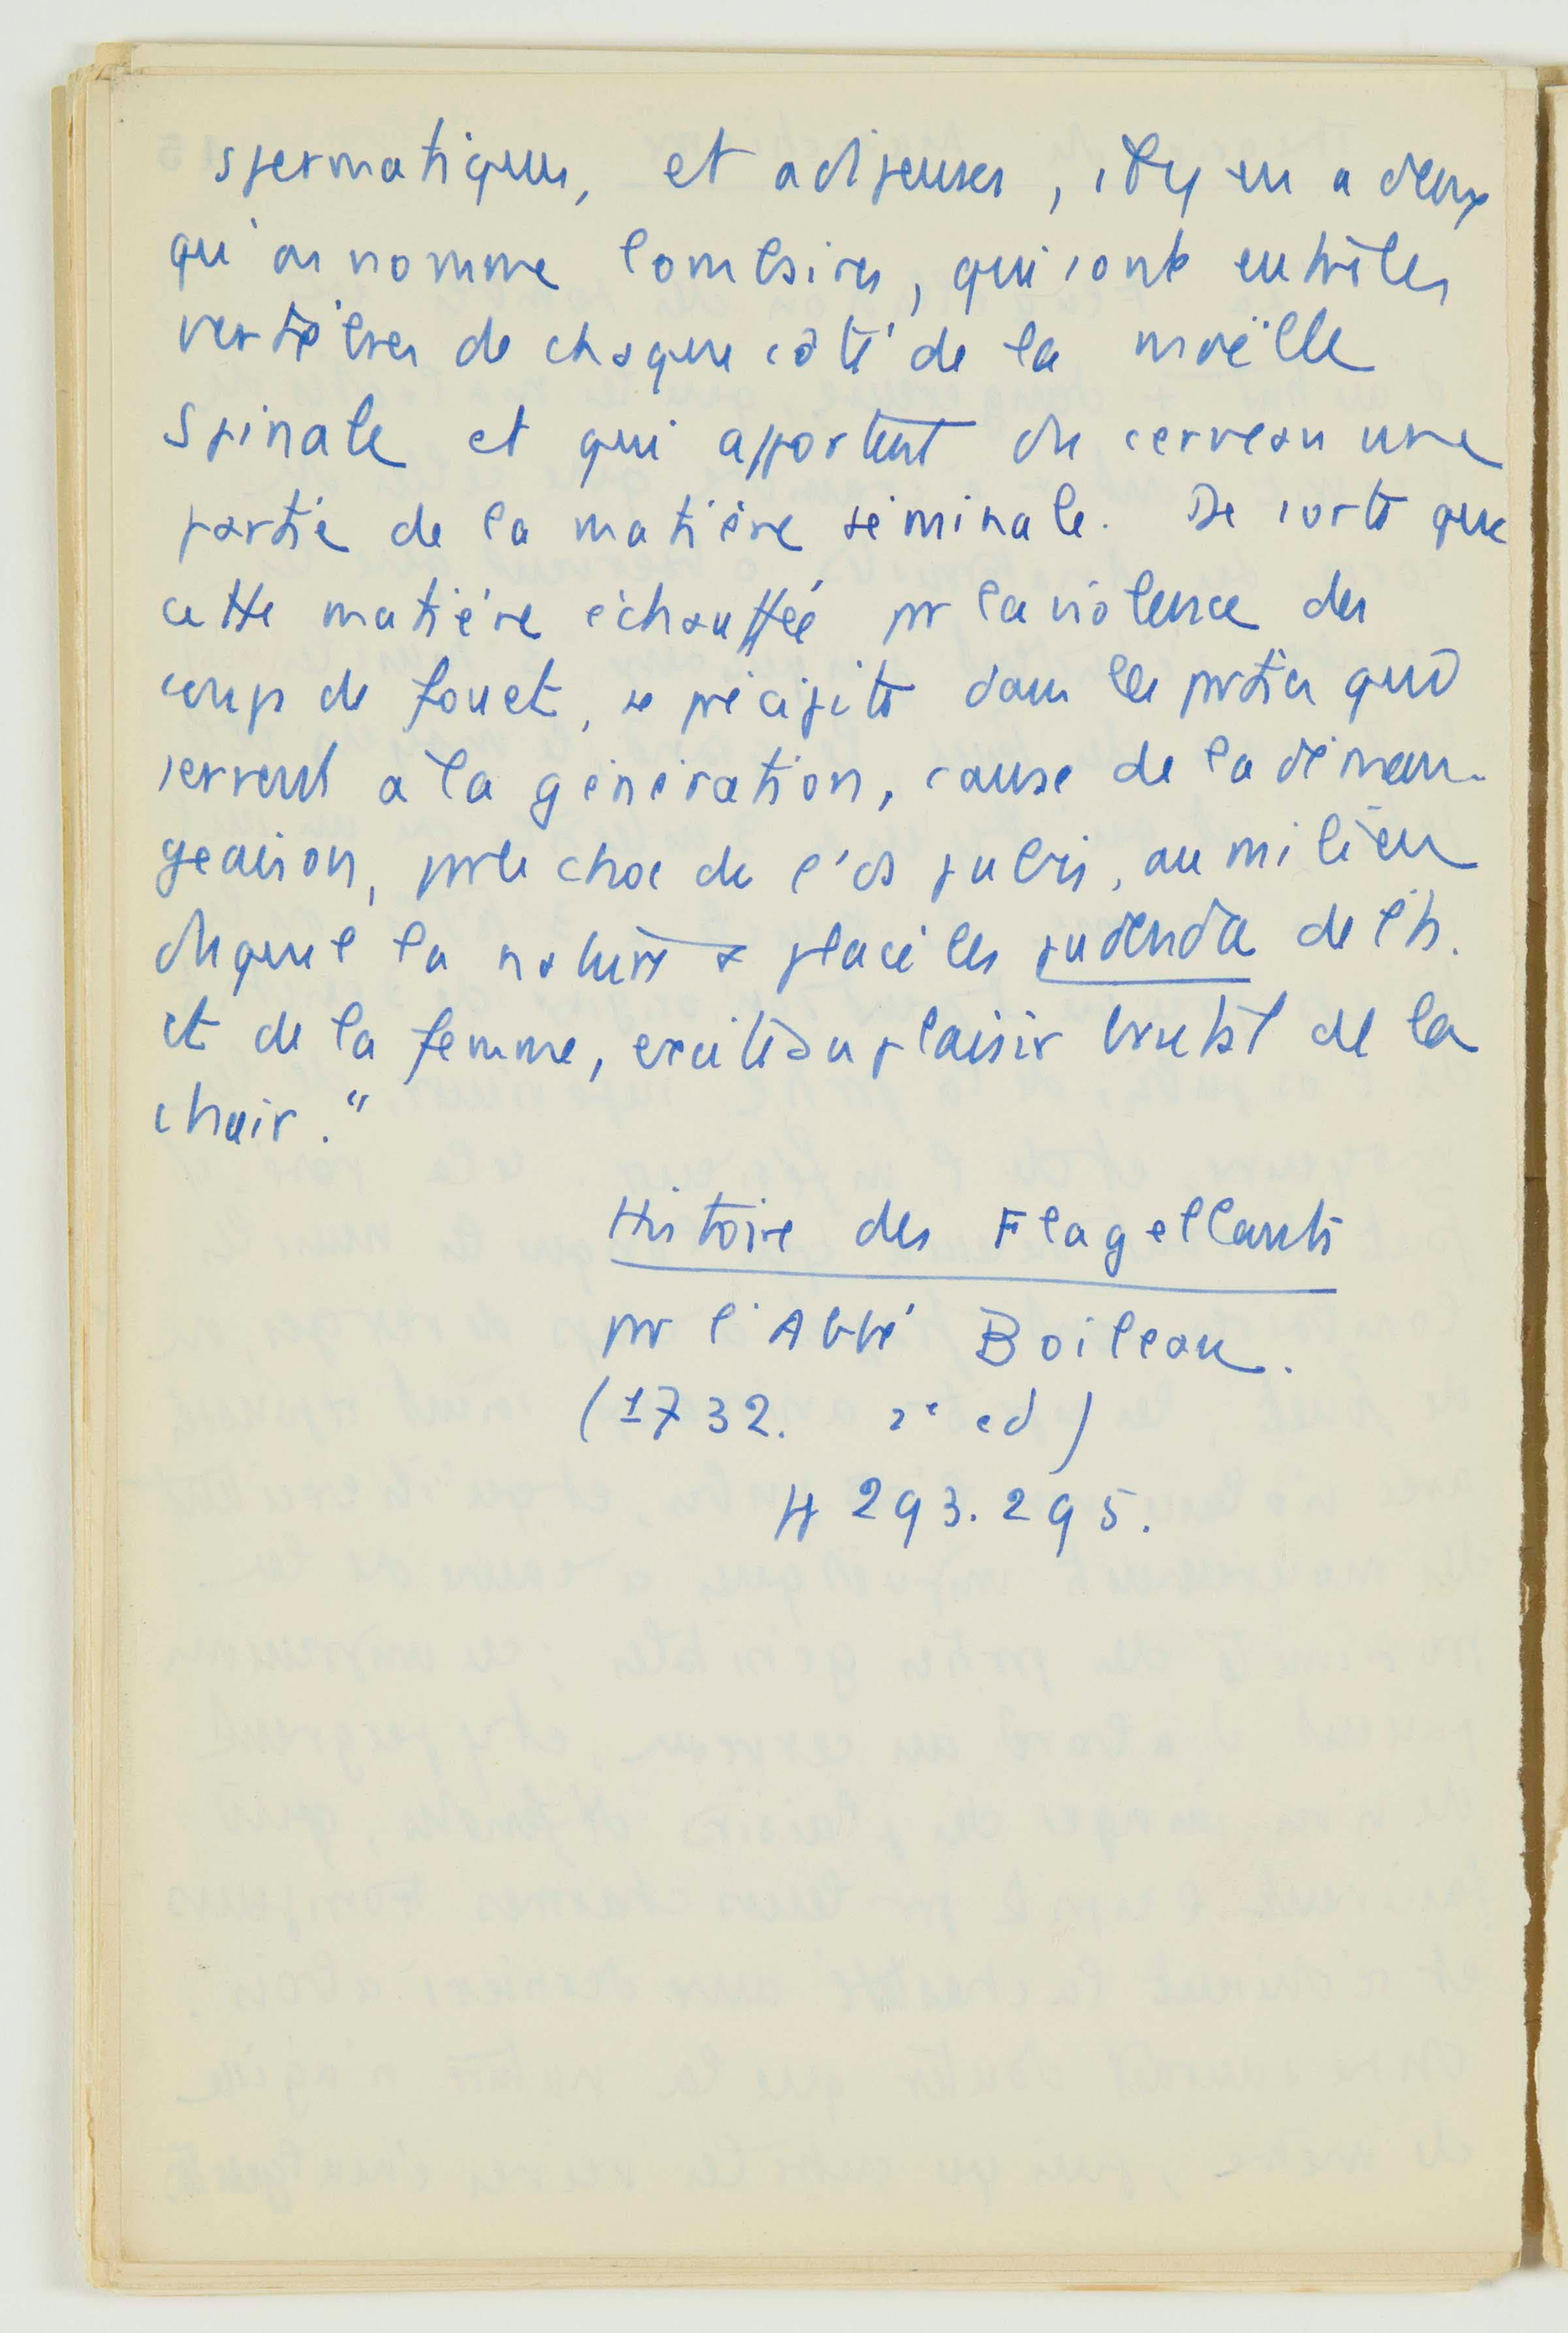 spermatiques, et adipeuses, il y en a deux
qu'on nomme lombaires, qui sont entre les
vertèbres de chaque côté de la moëlle
spinale et qui apportent du cerveau une
partie de la matière séminale. De sorte que
cette matière échauffée pr la violence des
coups de fouet, se précipite dans les prties qui
servent à la génération, cause de la déman-
geaison, pr le choc de l'os pubis, au milieu
duquel la nature a placé les pudenda de l'h.
et de la femme, excite au plaisir brutal de la
chair."
Histoire des Flagellants
pr l'Abbé Boileau.
(1732. 2e ed)
pp 293.295.